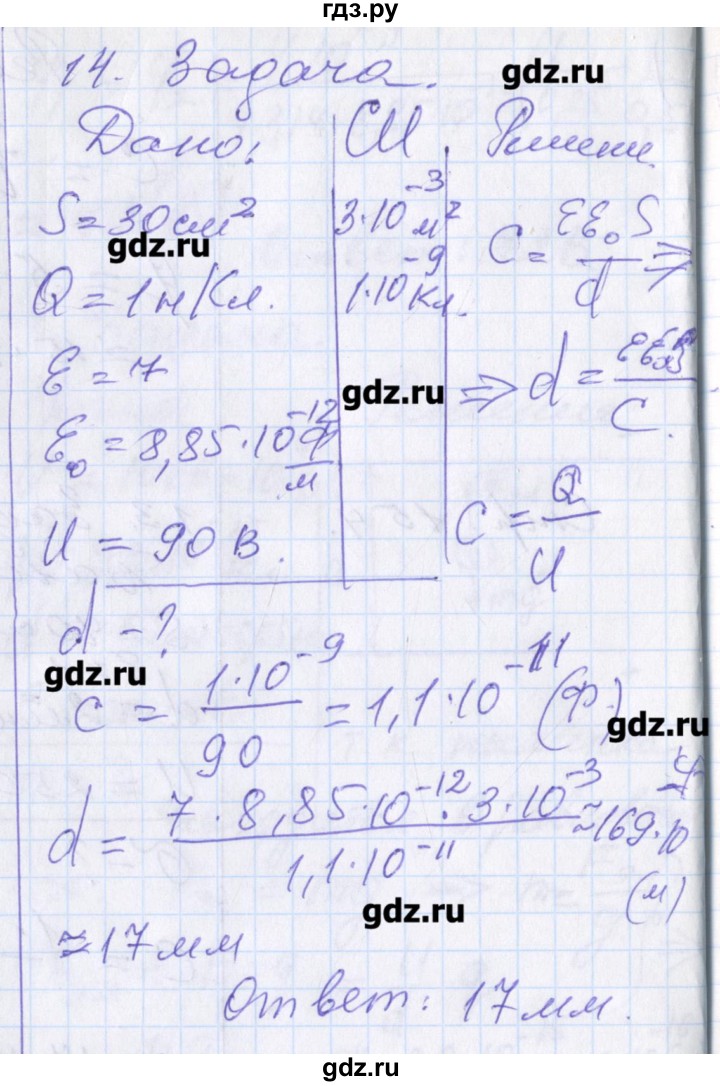 гдз.ру
14. Задача.
gdz.ru
Дано: СИ. Решение
S = 30 см² 3·10⁻³ м² C = εε₀S/d ⇒
gdz.ru
Q = 1 н/Кл. 1·10⁻⁹ Кл.
ε = 7 ⇒ d = εε₀S/C.
gdz.ru
ε₀ = 8,85·10⁻¹² Ф/м
U = 90 В. C = Q/U
d - ?
gdz.ru
C = 1·10⁻⁹/90 = 1,1·10⁻¹¹ (Ф)
gdz.ru
d = 7·8,85·10⁻¹²·3·10⁻³/1,1·10⁻¹¹ ≈ 169·10⁻⁴ (м)
gdz.ru
≈ 17 мм
Ответ: 17 мм.
gdz.ru